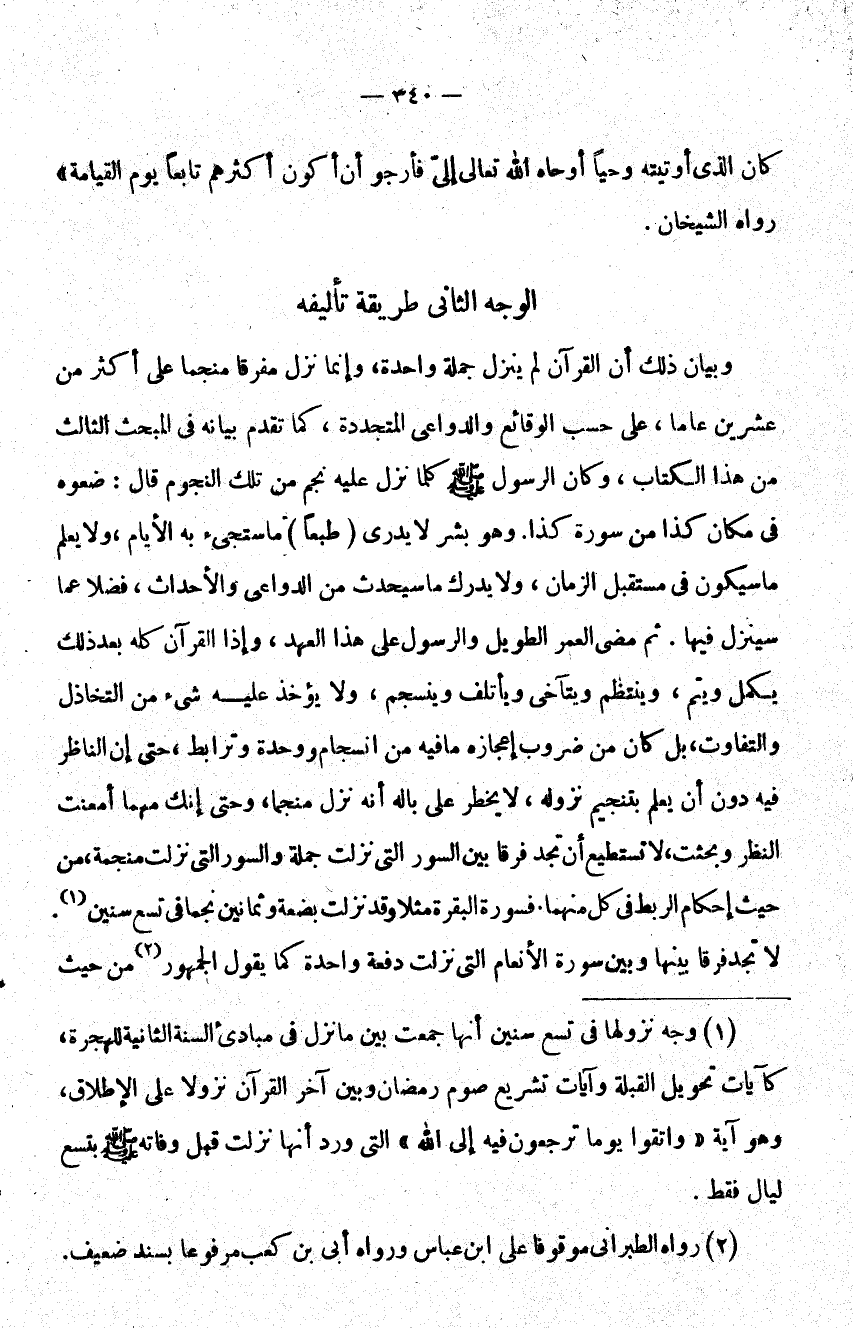 — ٣٤٠ —
كان الذى أوتيته وحياً أوحاه الله تعالى إلىّ فأرجو أن أكون أكثرهم تابعاً يوم القيامة»
رواه الشيخان .
الوجه الثانى طريقة تأليفه
وبيان ذلك أن القرآن لم ينزل جملة واحدة، وإنما نزل مفرقا منجما على أكثر من
عشرين عاما ، على حسب الوقائع والدواعى المتجددة ، كما تقدم بيانه فى المبحث الثالث
من هذا الكتاب ، وكان الرسول ﷺ كلما نزل عليه نجم من تلك النجوم قال : ضعوه
فى مكان كذا من سورة كذا. وهو بشر لايدرى ( طبعاً ) ماستجىء به الأيام ،ولايعلم
ماسيكون فى مستقبل الزمان ، ولايدرك ماسيحدث من الدواعى والأحداث ، فضلا عما
سينزل فيها . ثم مضى العمر الطويل والرسول على هذا العهد ، وإذا القرآن كله بعد ذلك
يكمل ويتم ، وينتظم ويتآخى ويأتلف وينسجم ، ولا يؤخذ عليه شىء من التخاذل
والتفاوت، بل كان من ضروب إعجازه مافيه من انسجام ووحدة وترابط ،حتى إن الناظر
فيه دون أن يعلم بتنجيم نزوله ، لايخطر على باله أنه نزل منجما، وحتى إنك مهما أمعنت
النظر وبحثت، لاتستطيع أن تجد فرقا بين السور التى نزلت جملة والسور التى نزلت منجمة،من
حيث إحكام الربط فى كل منهما. فسورة البقرة مثلا وقد نزلت بضعة وثمانين نجما فى تسع سنين (١) .
لا تجد فرقا بينها وبين سورة الأنعام التى نزلت دفعة واحدة كما يقول الجمهور (٢) من حيث
(١) وجه نزولها فى تسع سنين أنها جمعت بين مانزل فى مبادئ السنة الثانية للهجرة،
كآيات تحويل القبلة وآيات تشريع صوم رمضان وبين آخر القرآن نزولا على الإطلاق،
وهو آية « واتقوا يوما ترجعون فيه إلى الله » التى ورد أنها نزلت قبل وفاته ﷺ بتسع
ليال فقط .
(٢) رواه الطبرانى موقوفا على ابن عباس ورواه أبى بن كعب مرفوعا بسند ضعيف.